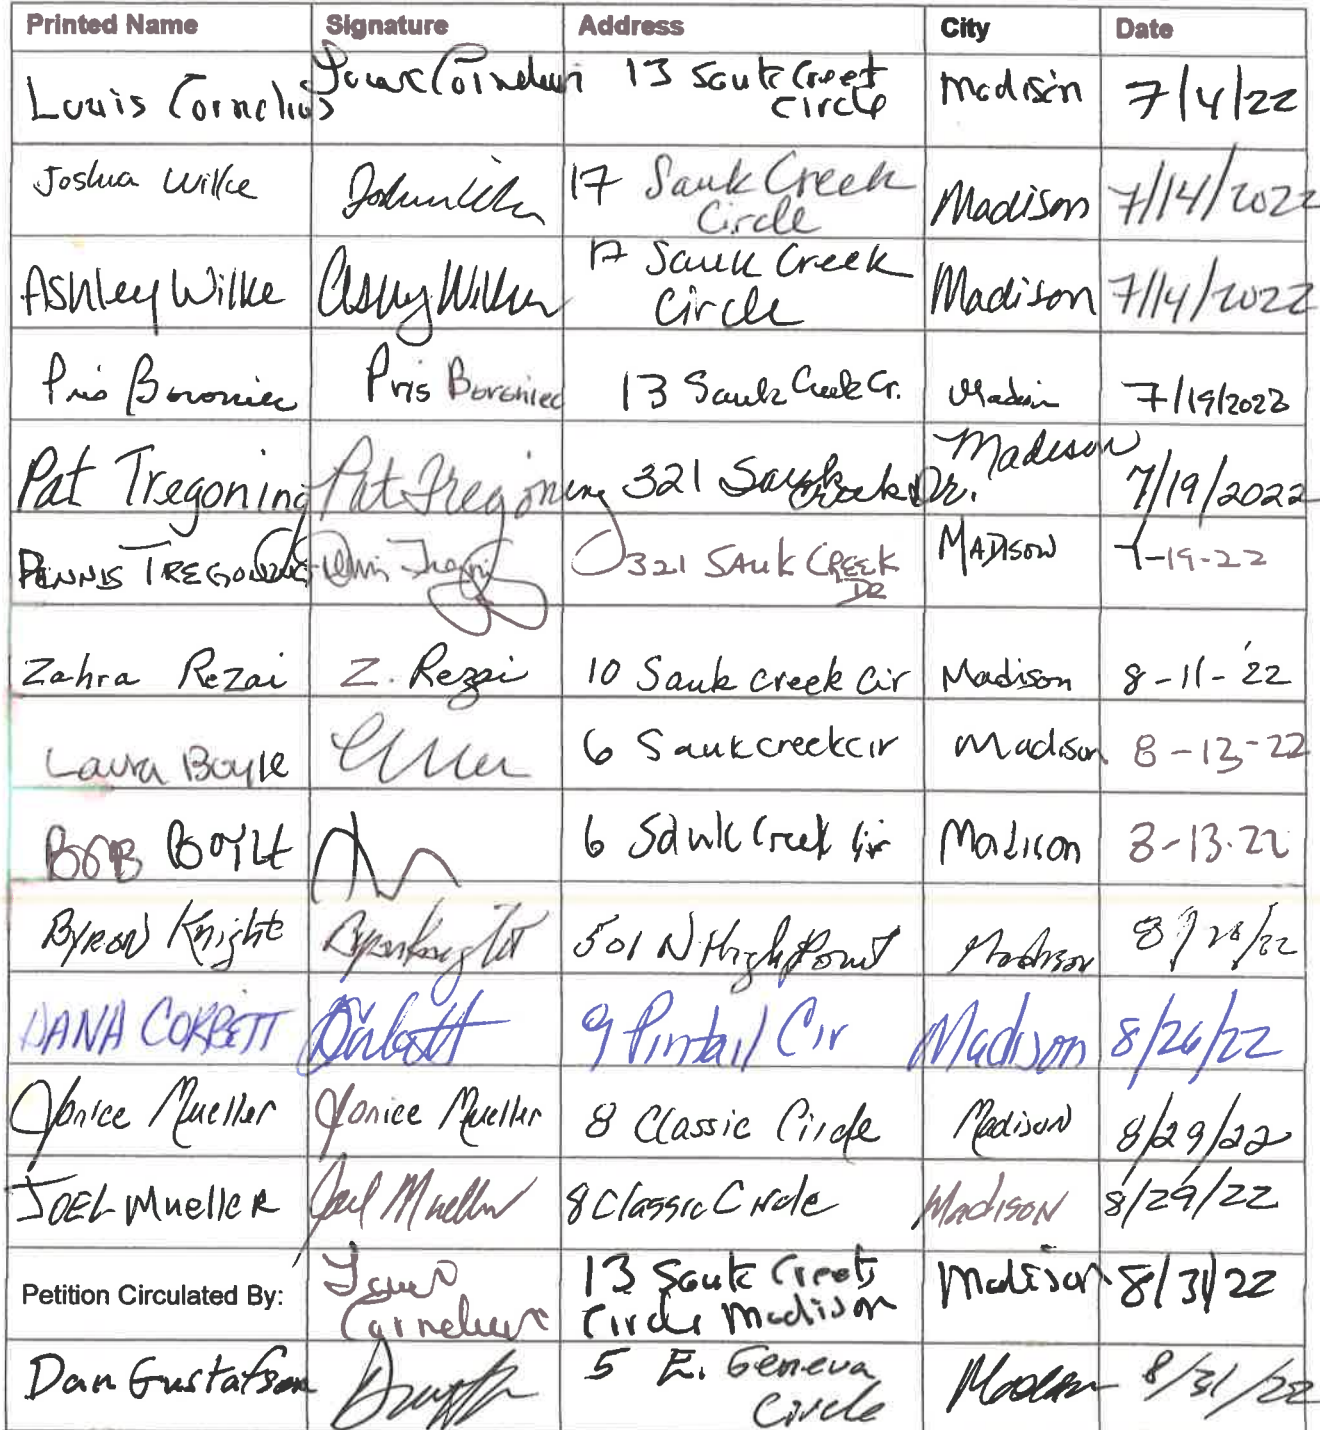 Printed Name Signature Address City Date
Louis Cornelius Louis Cornelius 13 Sauk Creek Circle Madison 7/4/22
Joshua Wilke 17 Sauk Creek Circle Madison 7/14/2022
Ashley Wilke Ashley Wilke 17 Sauk Creek Circle Madison 7/14/2022
Pris Boroniec Pris Boroniec 13 Sauk Creek Cr. Madison 7/19/2022
Pat Tregoning Pat Tregoning 321 Sauk Creek Dr. Madison 7/19/2022
DENNIS TREGONING 321 SAUK CREEK DR MADISON 7-19-22
Zahra Rezai Z. Rezai 10 Sauk creek Cir Madison 8-11-'22
Laura Boyle 6 Sauk creek cir Madison 8-13-22
BOB Boyle 6 Sauk Creek Cir Madison 8-13-22
Byron Knight Byron Knight 501 N High Point Madison
DANA CORBETT 9 Pintail Cir Madison 8/26/22
Janice Mueller Janice Mueller 8 Classic Circle Madison 8/29/22
JOEL MuelleR Joel Mueller 8 Classic Circle Madison 8/29/22
Petition Circulated By: Louis Cornelius 13 Sauk Creek Circle Madison Madison 8/31/22
Dan Gustafson 5 E. Geneva Circle Madison 8/31/22